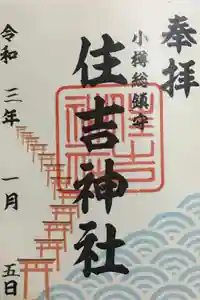 奉拝
小樽総鎮守
住吉神社
令和三年一月五日